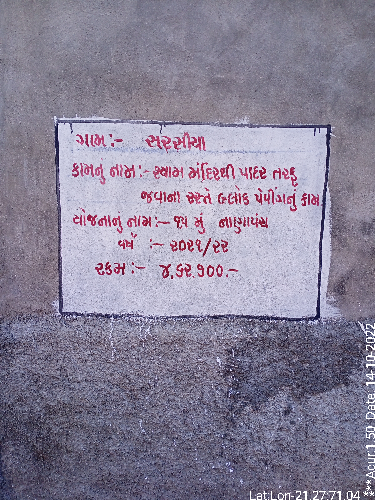 ગામ:- સરસીયા
કામનું નામ:- સ્યામ મંદિરથી પાદર તરફ
જવાના રસ્તે બ્લોક પેવીંગનું કામ
યોજનાનું નામ:- ૧૫ મું નાણાપંચ
વર્ષ :- ૨૦૨૧/૨૨
રકમ:- ૪,૬૨.૧૦૦.-
Lat|Lon-21.27:71.04
***Acur:1.50, Date: 14-10-2022